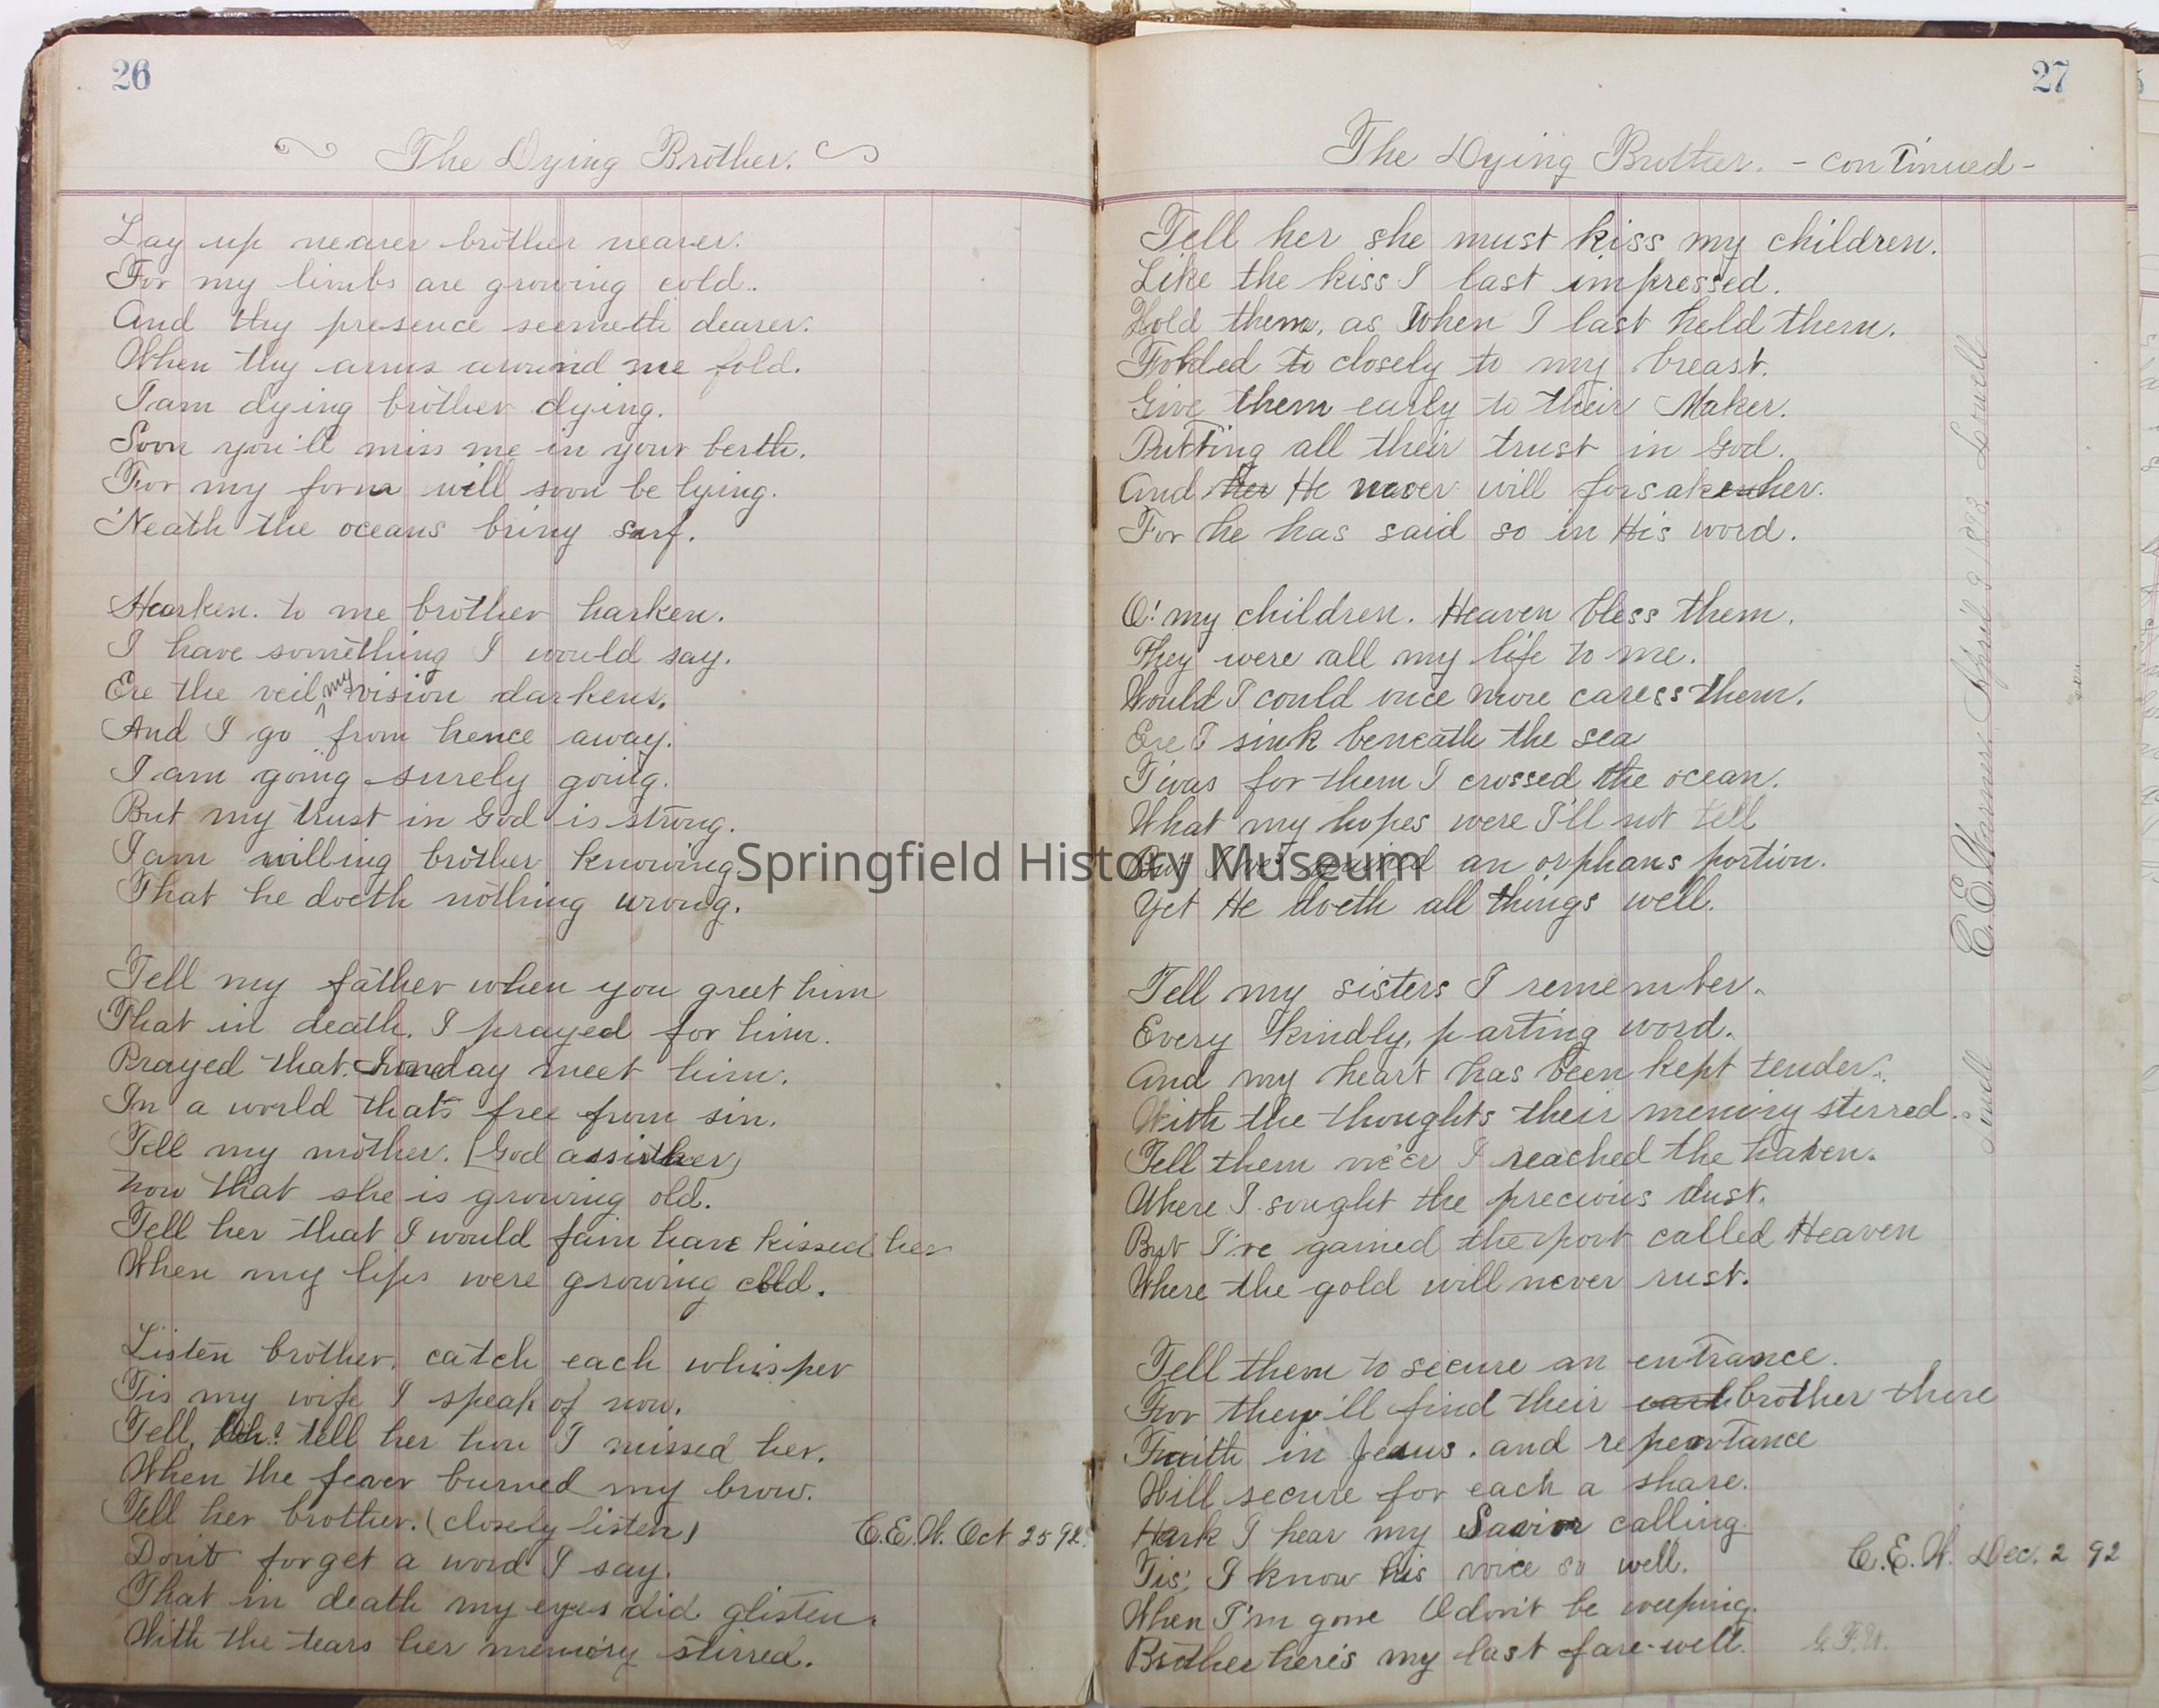 26
The Dying Brother.
Lay up nearer brother nearer.
For my limbs are growing cold.
And thy presence seemeth dearer.
When thy arms around me fold.
I am dying brother dying.
Soon you'll miss me in your berth.
For my form will soon be lying.
'Neath the oceans briny surf.
Hearken. to me brother harken.
I have something I would say.
Ere the veil my vision darkens.
And I go from hence away.
I am going surely going.
But my trust in God is strong.
I am willing brother knowing.
That he doeth nothing wrong.
Tell my father when you greet him
That in death. I prayed for him.
Prayed that. I one day meet him.
In a world thats free from sin.
Tell my mother. (God assist her)
now that she is growing old.
Tell her that I would fain have kissed her
When my lips were growing cold.
Listen brother. catch each whisper
Tis my wife I speak of now.
Tell, Oh! tell her how I missed her.
When the fever burned my brow.
Tell her brother. (closely listen)
Don't forget a word I say.
That in death my eyes did glisten.
With the tears her memory stirred.
C.E.W. Oct 25 92.
27
The Dying Brother. - continued -
Tell her she must kiss my children.
Like the kiss I last impressed.
Hold them, as when I last held them.
Folded to closely to my breast.
Give them early to their Maker.
Putting all their trust in God.
And her He never will forsake her.
For he has said so in His word.
O! my children. Heaven bless them.
They were all my life to me.
Would I could once more caress them.
Ere I sink beneath the sea
T'was for them I crossed the ocean.
What my hopes were I'll not tell
But I've gained an orphans portion.
Yet He doeth all things well.
Tell my sisters I remember.
Every kindly, parting word.
And my heart has been kept tender.
With the thoughts their memory sterred.
Tell them ne'er I reached the haven.
Where I sought the precious dust.
But I've gained the port called Heaven
Where the gold will never rust.
Tell them to secure an entrance.
For they'll find their brother there
Faith in Jesus. and repentance
Will secure for each a share.
Hark I hear my Savior calling.
Tis; I know his voice so well.
When I'm gone O don't be weeping.
Brother here's my last fare-well.
C.E.W. Dec. 2 92
C.E. Warner April 9 1893 Lowell
Lowell
Springfield History Museum